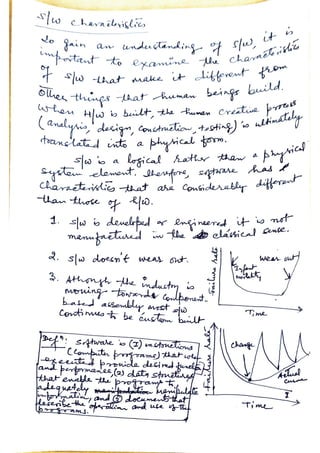 S/W Characteristics
To gain an understanding of S/W, it is
important to examine the characteristics
of S/W that make it different from
other things that human beings build.
When H/W is built, the human creative process
(analysis, design, construction, testing) is ultimately
translated into a physical form.
S/W is a logical rather than a physical
system element. Therefore, software has
characteristics that are considerably different
than those of H/W.
1. S/W is developed or engineered it is not
manufactured in the classical sense.
2. S/W doesn't wear out.
3. Although the industry is
moving towards component
based assembly most S/W
continues to be custom built
Failure rate
Infant
mortality
wear out
Time
Defn: Software is (1) instructions
(computer programs) that when
executed provide desired
and performance, (2) data structures
that enable the programs to
adequately manipulate
information, and (3) documents that
describe the operation and use of the
programs.
Failure rate
change
Actual
curve
I
Time